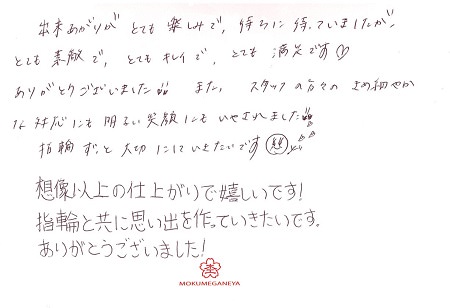 出来あがりが とても 楽しみで、待ちに待っていましたが、
とても 素敵で、とても キレイで、とても 満足です♡
ありがとうございました!! また、スタッフの方々の きめ細やか
な 対応にも 明るい 笑顔にも いやされました!!
指輪 ずっと 大切に していきたいです
想像以上の仕上がりで嬉しいです!
指輪と共に思い出を作っていきたいです。
ありがとうございました!
MOKUMEGANEYA